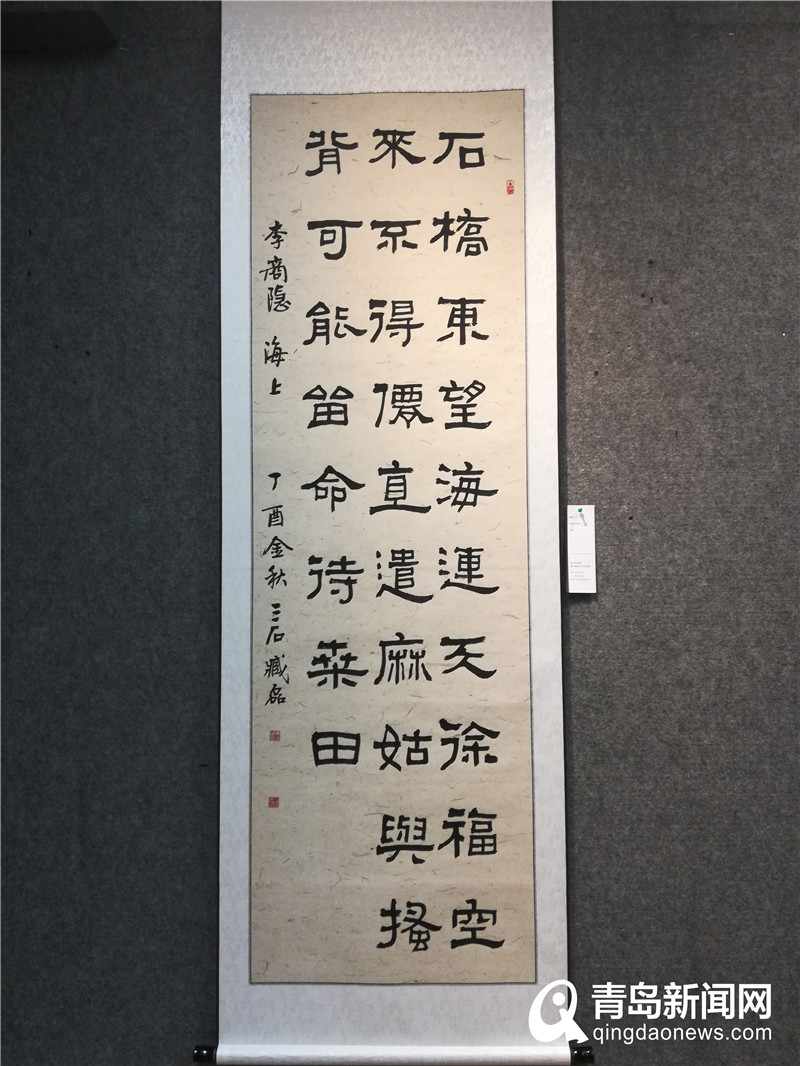 石橋東望海連天徐福空
來不得僊直遣麻姑與搔
背可能畱命待桒田
李商隐 海上 丁酉金秋 三石臧磊
青岛新闻网
qingdaonews.com